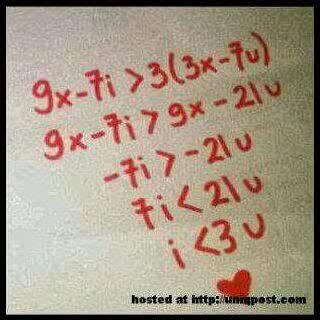 9x-7i>3(3x-7u)
9x-7i>9x-21u
-7i>-21u
7i<21u
i<3u
hosted at http://uniqpost.com